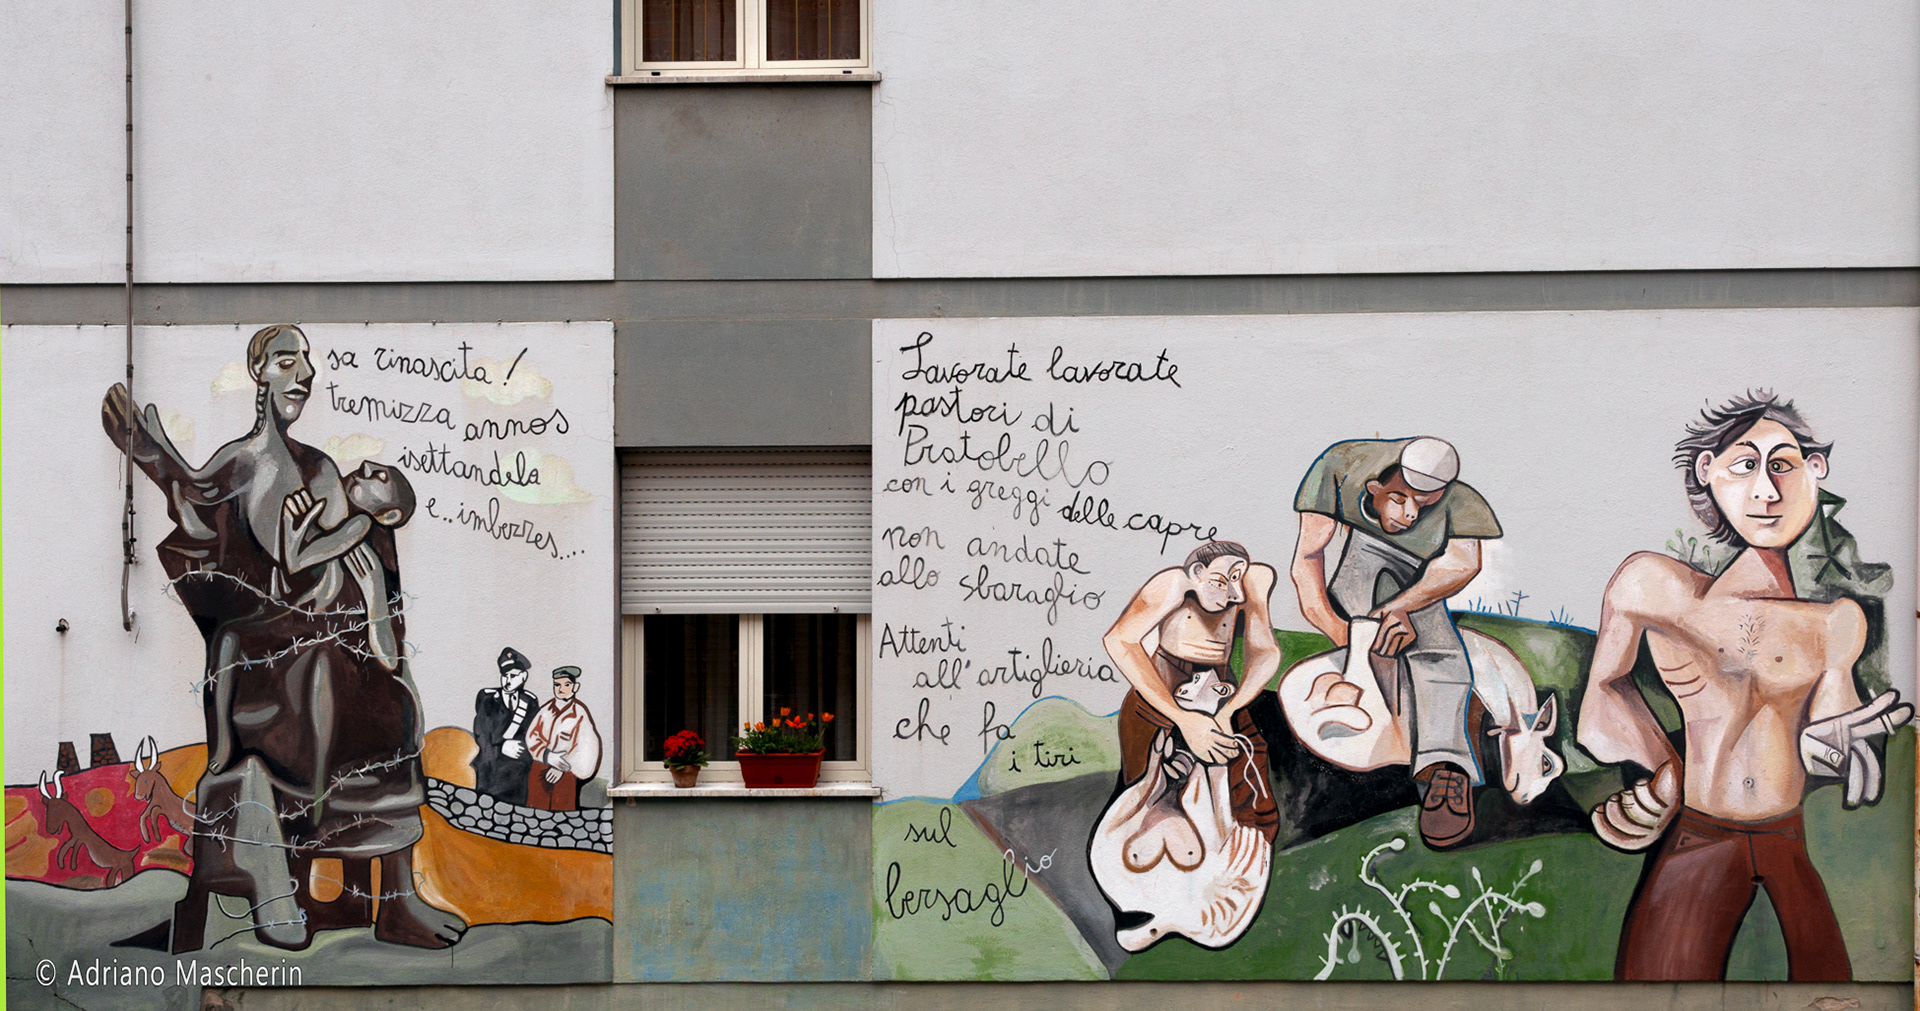 sa rinascita!
tremizza annos
isettandela
e..imbezzes....
Lavorate lavorate
pastori di
Pratobello
con i greggi delle capre
non andate
allo sbaraglio
Attenti
all'artiglieria
che fa
i tiri
sul
bersaglio
© Adriano Mascherin